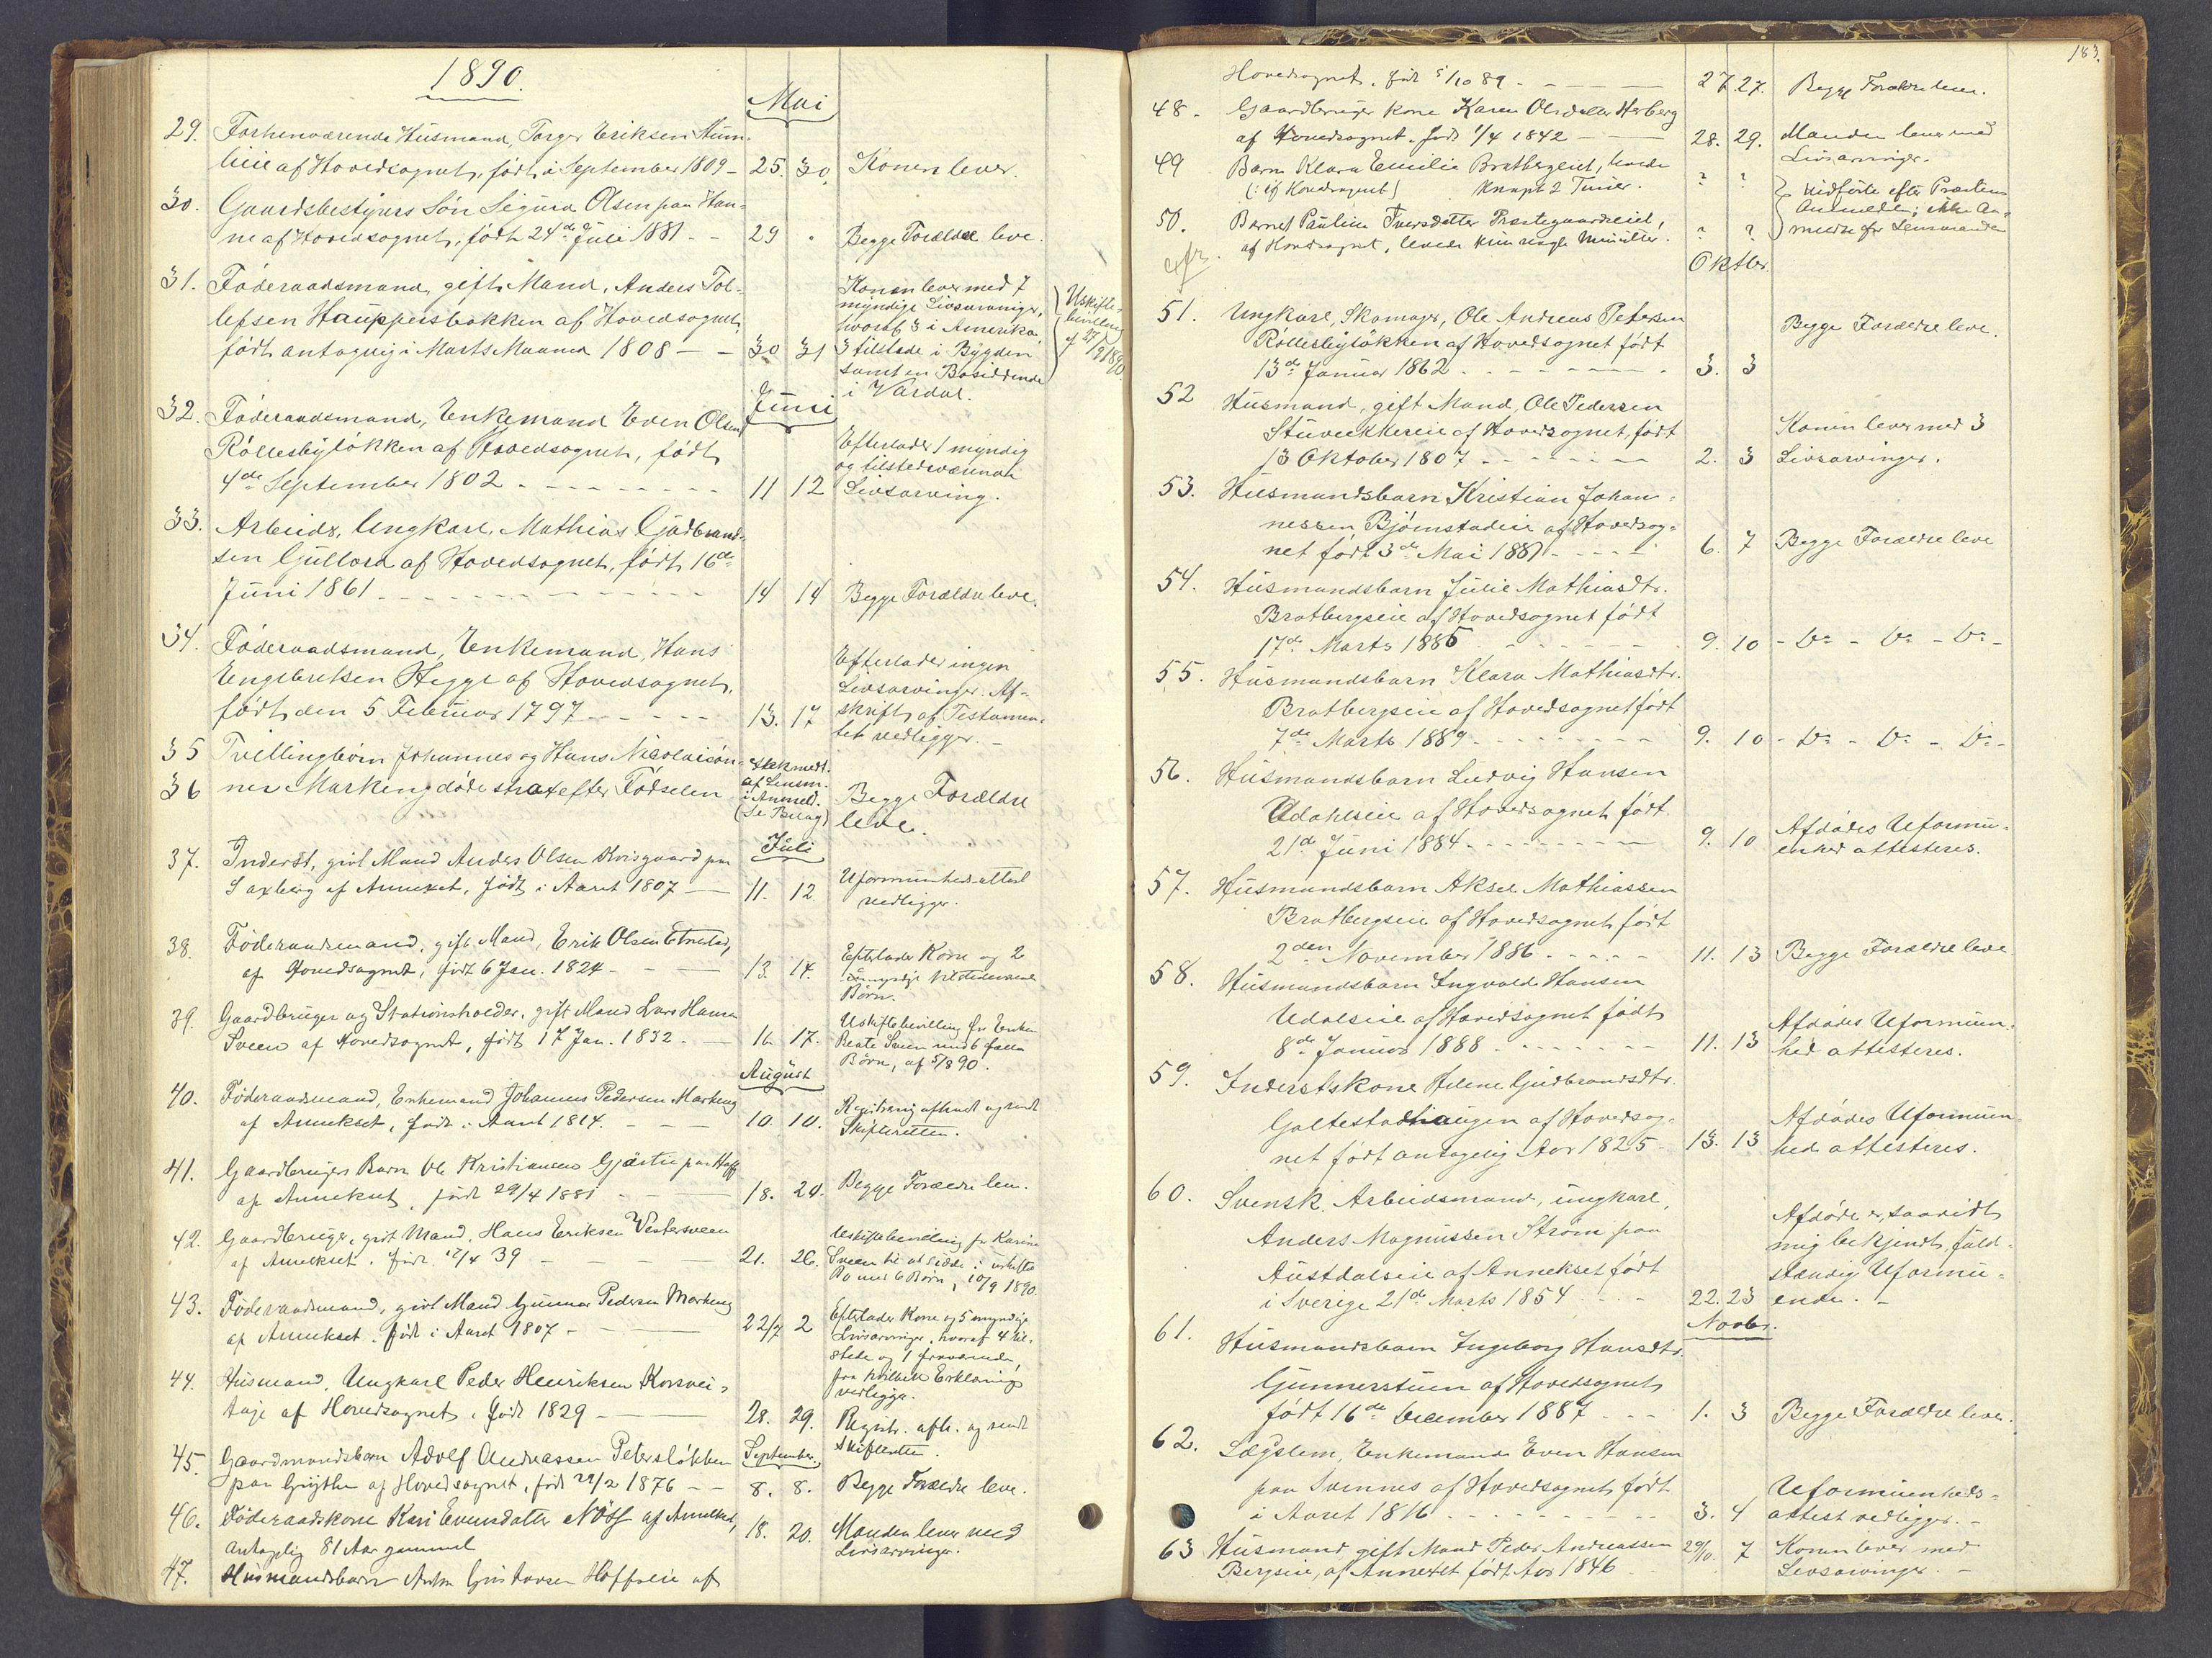 1890.
Mai
29. Forhenværende Husmand, Torger Eriksen Hum-
lieie af Hovedsognet, født i September 1809 – 25. 30. Konen lever.
30. Gaardsbestyrers Søn Sigurd Olsen paa Han-
ne af Hovedsognet, født 24de Juli 1881 – – 29 " Begge Forældre leve.
31. Føderaadsmand, gift Mand, Anders Tol-
lefsen Hauppersbakken af Hovedsognet,
født antagelig i Marts Maaned 1808 – – 30 31
Konen lever med 7
myndige Livsarvinger,
hvoraf 3 i Amerika,
3 tilstede i Bygden
samt en Bosiddende
i Vardal.
Uskifte-
bevilling
af
1890.
Juni
32. Føderaadsmand, Enkemand Even Olsen
Røllesbyløkken af Hovedsognet, født
4de September 1802 – – – 11 12
Efterlader 1 myndig
og tilstedeværende
Livsarving.
33. Arbeids, Ungkarl, Mathias Gudbrand-
sen Gullord af Hovedsognet, født 16de
Juni 1861 – – – 14 14 Begge Forældre leve.
34. Føderaadsmand, Enkemand, Hans
Engebretsen Hegge af Hovedsognet,
født den 5 Februar 1797 – – – 13. 17
Efterlader ingen
Livsarvinger. Af-
skrift af Testamen-
tet vedligger. –
35 Tvillingbørn Johannes og Hans Nicolaisøn-
36 ner Markeng døde strax efter Fødselen
Ikke medt.
af Lensm.
i Anmeld.
(Se Bilag)
Begge Forældre
leve.
Juli
37. Inderst, givt Mand Anders Olsen Kvisgaard paa
Saxberg af Annexet, født i Aaret 1807 – 11. 12.
Uformuenheds-attest
vedligger.
38. Føderaadsmand, gift Mand, Erik Olsen Etnestad,
af Hovedsognet, født 6 Jan. 1824 – – 13. 14.
Efterlader Kone og 2
myndige tilstedeværende
Børn.
39. Gaardbruger og Stationsholder, gift Mand Lars Hansen
Sveen af Hovedsognet, født 17 Jan. 1832. – 16. 17.
Uskiftebevilling for Enken
Beate Sveen med 6 fælles
Børn, af 5/8 90.
August
40. Føderaadsmand, Enkemand Johannes Pedersen Markeng
af Annekset, født i Aaret 1814. – – 10. 10.
Registrering afholdt og sendt
Skifteretten.
41. Gaardbrugers Barn Ole Kristiansen Gjøstu paa Hoff
af Annekset, født 29/4 1881 – – 18. 20. Begge Forældre leve.
42. Gaardbruger, givt Mand, Hans Eriksen Vestersveen
af Annekset. født 12/4 39 – – 21. 26.
Uskiftebevilling for Karine
Sveen til at sidde i uskiftet
Bo med 6 Børn, 10/9 1890.
43. Føderaadsmand, givt Mand Gunnar Pedersen Markeng
af Annekset. født i Aaret 1807 – – 22/7 2
Efterlader Kone og 5 myndige
Livsarvinger, hvoraf 4 til-
stede og 1 fraværende,
fra hvilken Erklæring
vedligger.
44. Husmand, Ungkarl Peder Henriksen Korsvei-
haje af Hovedsognet, født 1829 – – 28. 29.
Registr. afh. og sendt
Skifteretten.
September.
45. Gaardmandsbarn Adolf Andreassen Petersløkken
paa Grythe af Hovedsognet, født 29/2 1876 – – 8. 8. Begge Forældre leve.
46. Føderaadskone Kari Evensdatter Nøss af Annekset,
antagelig 81 Aar gammel 18. 20.
Manden lever med
Livsarvinger.
47. Husmandsbarn Anton Gustavsen Hoffseie af
183.
Hovedsognet. født 5/10 89 – – 27. 27. Begge Forældre leve.
48. Gaardbruger kone Karen Olsdatter Herberg
af Hovedsognet. født 1/4 1842 – – 28. 29.
Manden lever med
Livsarvinger.
49 Barn Klara Emilie Bratbergeiet, levede
(: af Hovedsognet) knapt 2 Timer. ? ?
50. Barnet Pauline Iversdatter Prestegaardseiet,
af Hovedsognet, levede kun nogle Minutter. ? ?
Indførte efter Præstens
Anmeldelse; ikke an-
meldt for Lensmanden
Oktbr.
51. Ungkarl, Skomager, Ole Andreas Petersen
Røllesbyløkken af Hovedsognet født
13de Januar 1862 – – – 3. 3
Begge Forældre leve.
52 Husmand, gift Mand, Ole Pedersen
Stuvekkereie af Hovedsognet, født
13 Oktober 1807 – – – 2. 3
Konen lever med 3
Livsarvinger.
53. Husmandsbarn Kristian Johan-
nessen Bjørnstadeie af Hovedsog-
net født 3de Mai 1881 – – – 6. 7 Begge Forældre leve
54. Husmandsbarn Julie Mathiasdtr.
Bratbergseie af Hovedsognet født
17de Marts 1885 – – – 9. 10 – Do – Do – Do –
55. Husmandsbarn Klara Mathiasdtr.
Bratbergseie af Hovedsognet født
7de Marts 1889 – – – 9. 10 – Do – Do – Do –
56. Husmandsbarn Ludvig Hansen
Udahlseie af Hovedsognet født
21de Juni 1884 – – – 9. 10
Afdødes Uformu-
enhed attesteres.
57. Husmandsbarn Aksel Mathiassen
Bratbergseie af Hovedsognet født
2den November 1886 – – – 11. 13 Begge Forældre leve
58. Husmandsbarn Ingvald Hansen
Udalseie af Hovedsognet født
8de Januar 1888 – – – 11. 13
Afdødes Uformuen-
hed attesteres.
59. Inderstskone Helene Gudbrandsdtr.
Galtestadhaugen af Hovedsog-
net født antagelig Aar 1825 – 13. 13
Afdødes Uformuen-
hed attesteres.
60. Svensk Arbeidsmand, ungkarl,
Anders Magnussen Strøm paa
Austdalseie af Annekset født
i Sverige 21de Marts 1854 – – 22. 23
Afdøde er, saavidt
mig bekjendt, fuld-
stændig Uformu-
ende. –
Novbr.
61. Husmandsbarn Ingeborg Hansdtr.
Gunnerstuen af Hovedsognet
født 16de December 1887 – – 1. 3 Begge Forældre lever.
62. Lægslem, Enkemand Even Hansen
paa Svennes af Hovedsognet født
i Aaret 1816 – – – 3. 4
Uformuenheds-
attest vedligger. –
63 Husmand gift Mand Peder Andreassen 29/10. 7 Konen lever med
Bergseie, af Annexet født Aar 1846 Livsarvinger. –